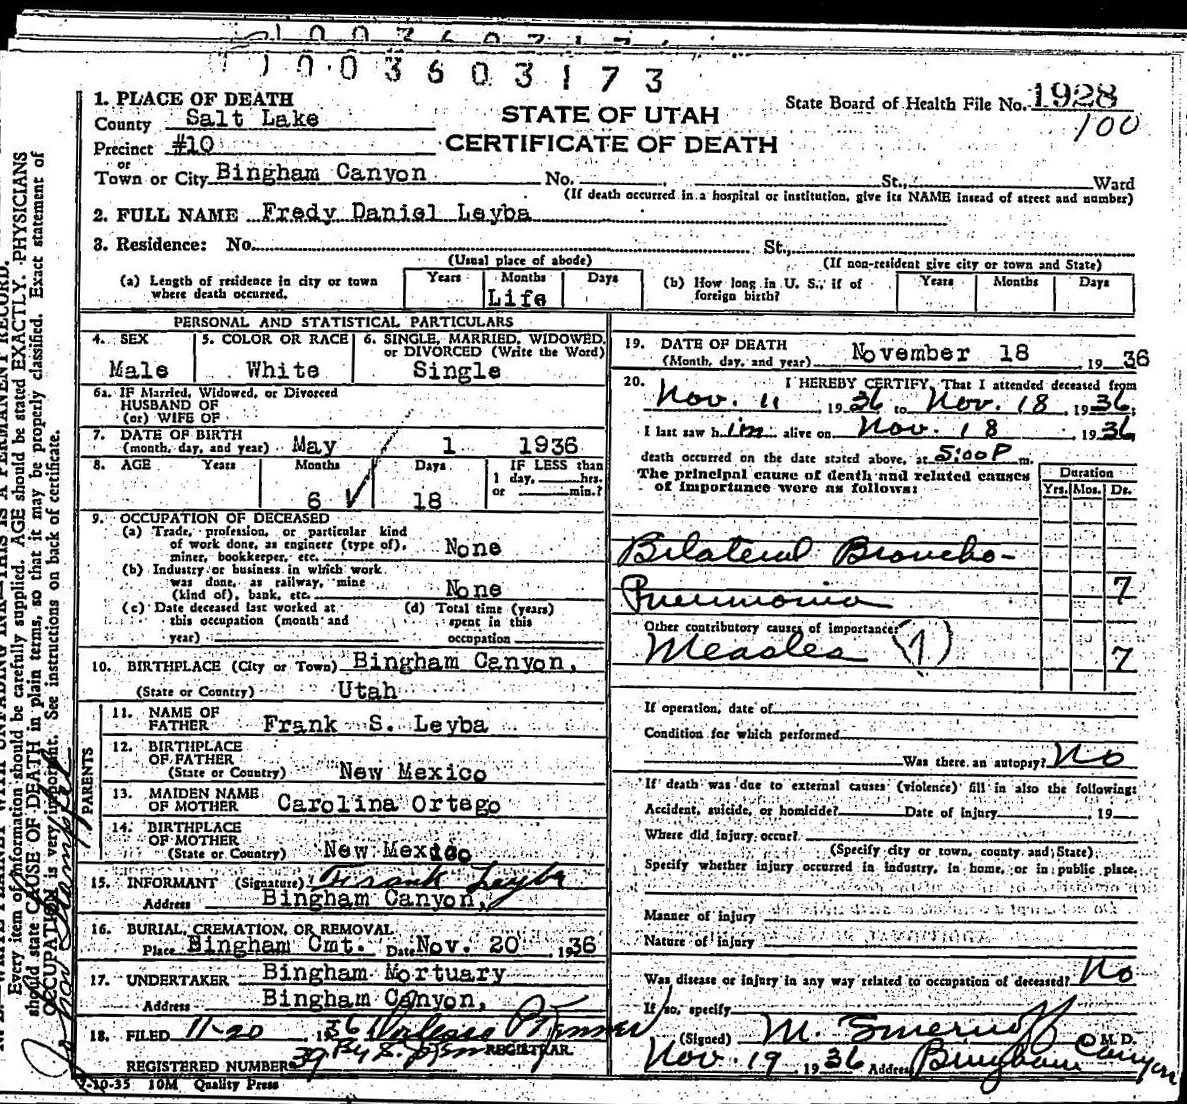 1003603173
STATE OF UTAH
CERTIFICATE OF DEATH
State Board of Health File No. 1928
100
1. PLACE OF DEATH
County Salt Lake
Precinct #10
or
Town or City Bingham Canyon No. St., Ward
(If death occurred in a hospital or institution, give its NAME insead of street and number)
2. FULL NAME Fredy Daniel Leyba
3. Residence: No. St.,
(Usual place of abode) (If non-resident give city or town and State)
(a) Length of residence in city or town where death occurred. Years Months Days
Life
(b) How long in U. S., if of foreign birth? Years Months Days
PERSONAL AND STATISTICAL PARTICULARS
4. SEX
Male
5. COLOR OR RACE
White
6. SINGLE, MARRIED, WIDOWED, or DIVORCED (Write the Word)
Single
6a. IF Married, Widowed, or Divorced
HUSBAND OF
(or) WIFE OF
7. DATE OF BIRTH
(month, day, and year) May 1 1936
8. AGE Years Months Days IF LESS than
1 day, hrs.
or min.?
6 18
9. OCCUPATION OF DECEASED
(a) Trade, profession, or particular kind
of work done, as engineer (type of),
miner, bookkeeper, etc. None
(b) Industry or business in which work
was done, as railway, mine
(kind of), bank, etc. None
(c) Date deceased last worked at
this occupation (month and
year)
(d) Total time (years)
spent in this
occupation
10. BIRTHPLACE (City or Town) Bingham Canyon,
(State or Country) Utah
PARENTS
11. NAME OF
FATHER Frank S. Leyba
12. BIRTHPLACE
OF FATHER
(State or Country) New Mexico
13. MAIDEN NAME
OF MOTHER Carolina Ortego
14. BIRTHPLACE
OF MOTHER
(State or Country) New Mexico
15. INFORMANT (Signature) Frank Leyba
Address Bingham Canyon,
16. BURIAL, CREMATION, OR REMOVAL
Place Bingham Cmt. Date Nov. 20, 1936
17. UNDERTAKER Bingham Mortuary
Address Bingham Canyon,
18. FILED 11-20 1936
REGISTRAR.
REGISTERED NUMBER 39
7-10-35 10M Quality Press
19. DATE OF DEATH
(Month, day, and year) November 18 , 1936
20. I HEREBY CERTIFY, That I attended deceased from
Nov. 11, 1936 to Nov. 18, 1936;
I last saw him alive on Nov. 18, 1936,
death occurred on the date stated above, at 5:00P m.
The principal cause of death and related causes
of importance were as follows:
Duration
Yrs. Mos. Ds.
Bilateral Broncho-
Pneumonia 7
Other contributory causes of importance:
Measles (1) 7
If operation, date of
Condition for which performed
Was there an autopsy? No
If death was due to external causes (violence) fill in also the following:
Accident, suicide, or homicide? Date of injury , 19
Where did injury occur?
(Specify city or town, county and State)
Specify whether injury occurred in industry, in home, or in public place,
Manner of injury
Nature of injury
Was disease or injury in any way related to occupation of deceased? No
If so, specify
(Signed) M. M. D.
Nov. 19 1936 Address Bingham Canyon
Every item of information should be carefully supplied. AGE should be stated EXACTLY. PHYSICIANS
should state CAUSE OF DEATH in plain terms, so that it may be properly classified. Exact statement of
OCCUPATION is very important. See instructions on back of certificate.